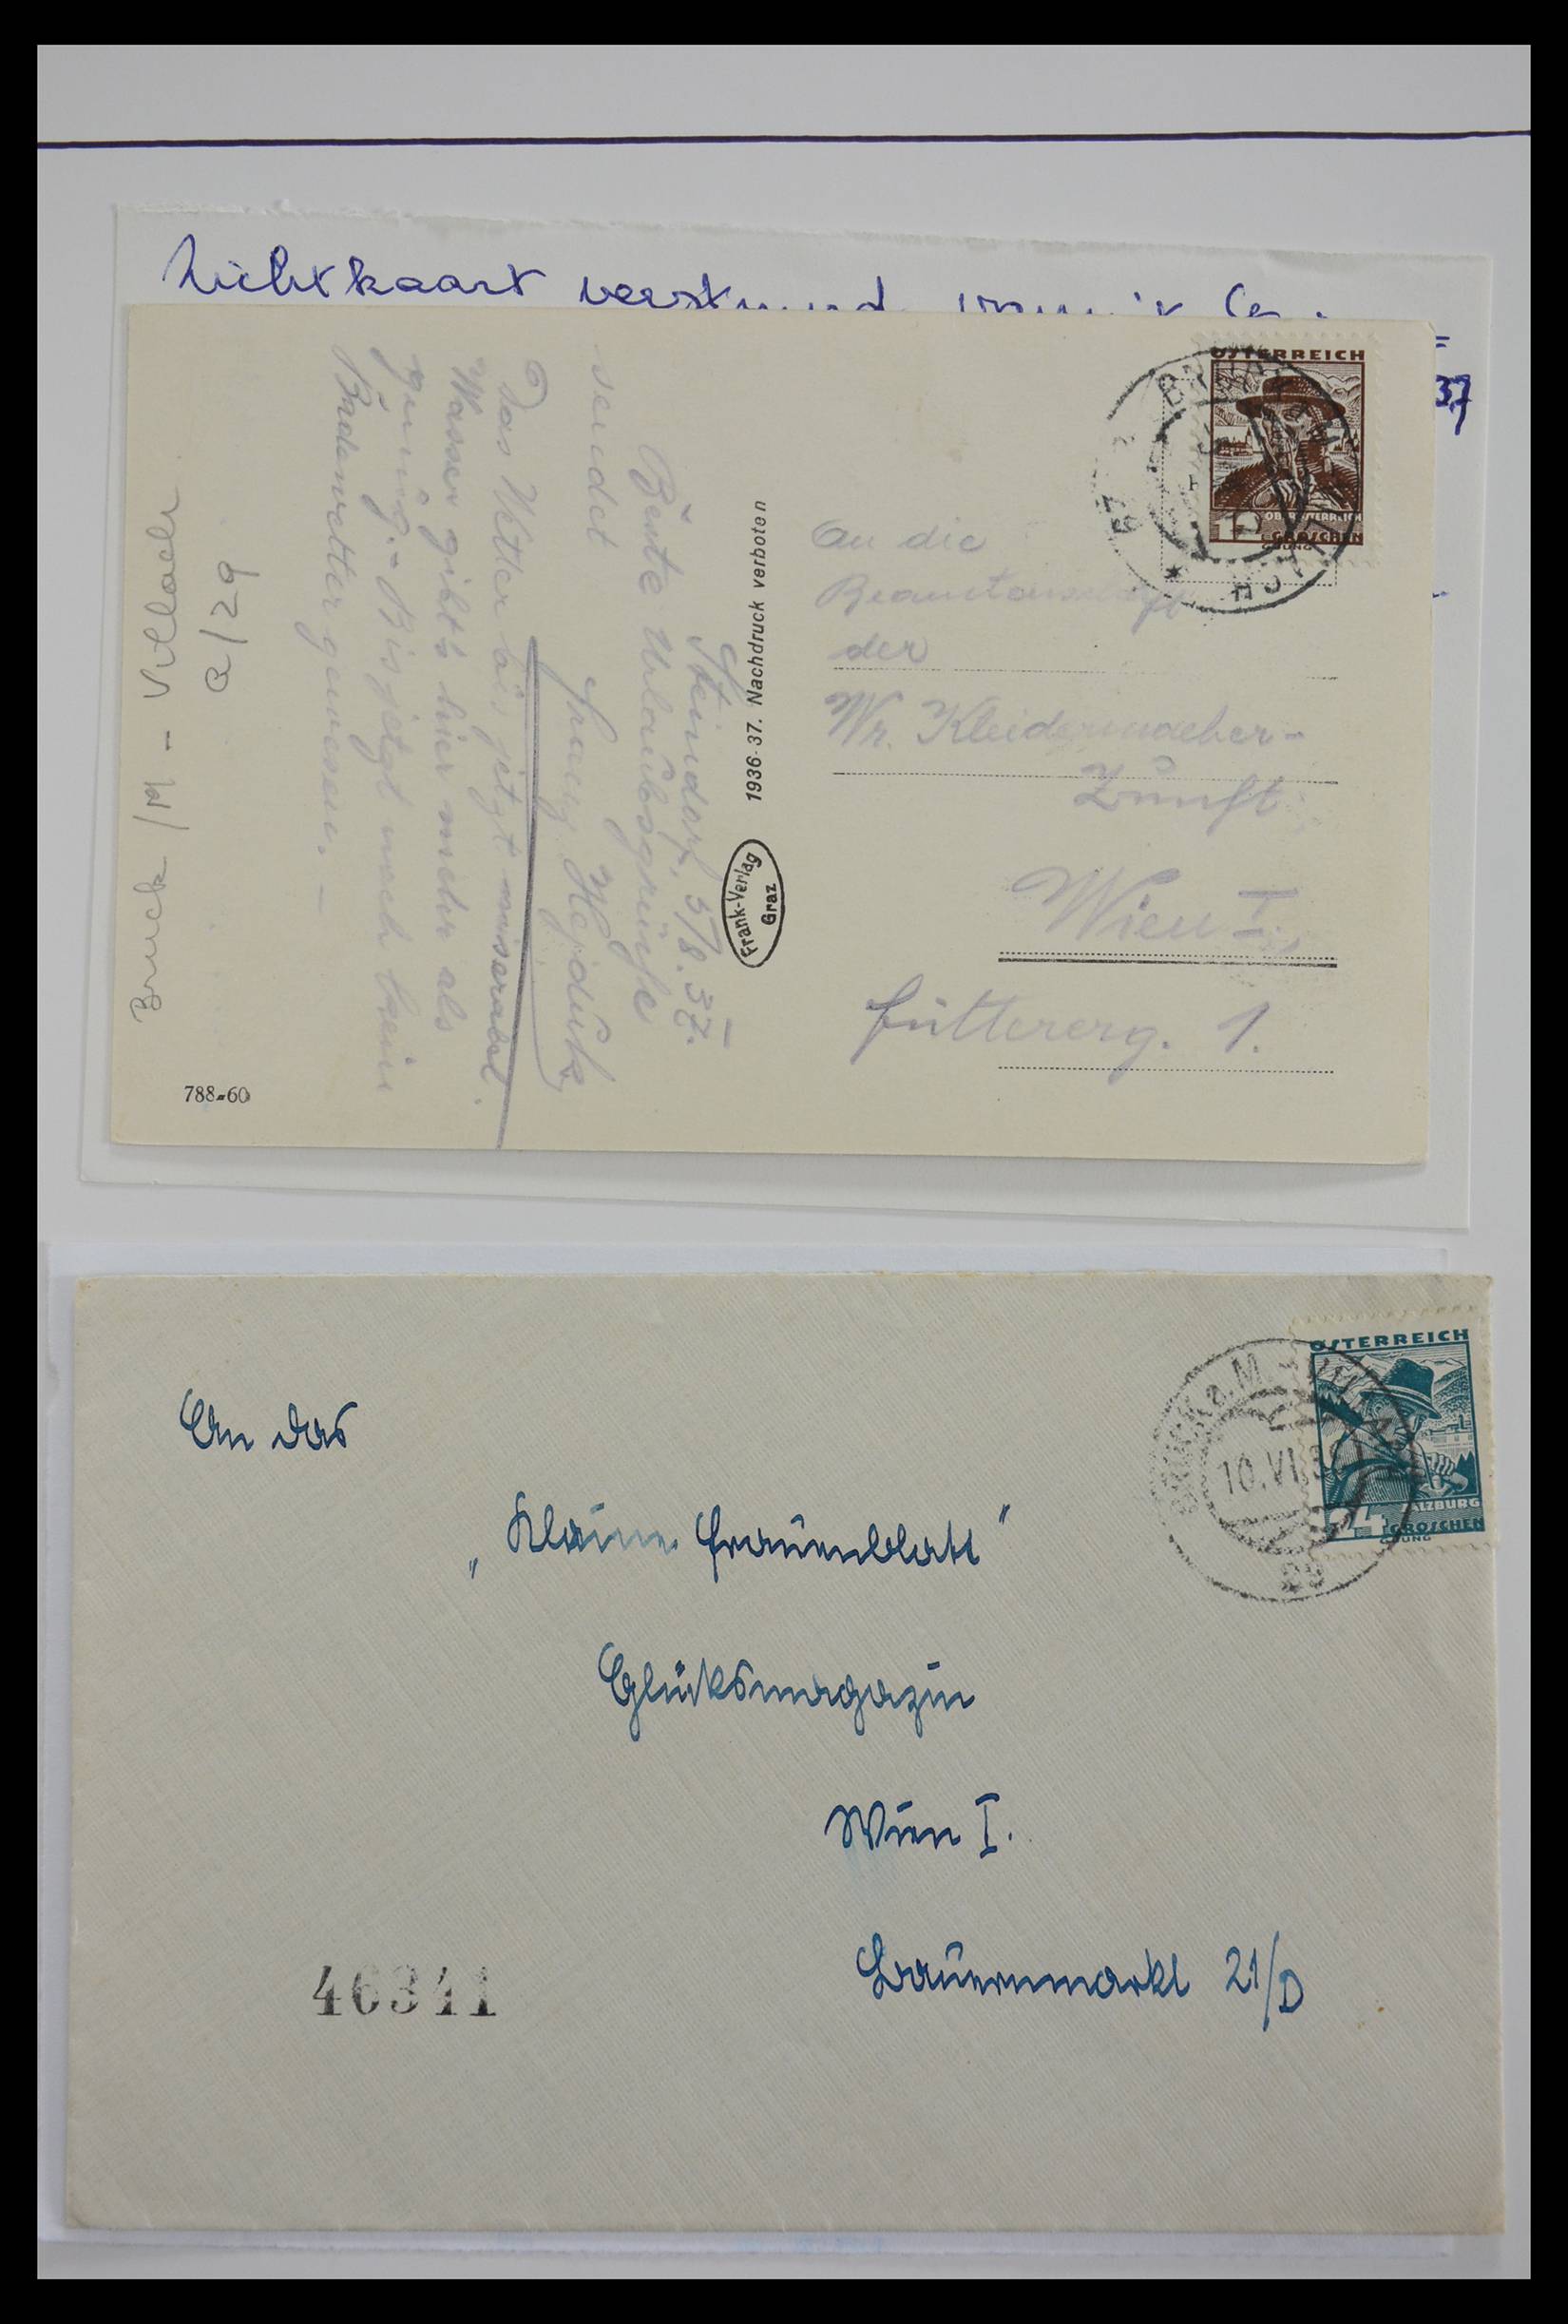 Zichtkaart
37
ÖSTERREICH
OBERÖSTERREICH
12 GROSCHEN
An die
Beamtenschaft
der
Wr. Kleidermacher-
Zunft
Wien I.
Füttererg. 1.
1936-37. Nachdruck verboten
Frank-Verlag
Graz
Steindorf, 5/8. 37.
Beste Urlaubsgrüße
sendet
Das Wetter bis jetzt miserabel.
Wasser gibt's hier mehr als
genug. - Bis jetzt noch kein
Badewetter gewesen. -
Bruck /M - Villach
a/29
788-60
ÖSTERREICH
SALZBURG
24 GROSCHEN
BRUCK a. M. - VILLACH
10. VI. 3
An das
„Kleine Frauenblatt"
Glücksmagazin
Wien I.
Bauernmarkt 21/D
46341